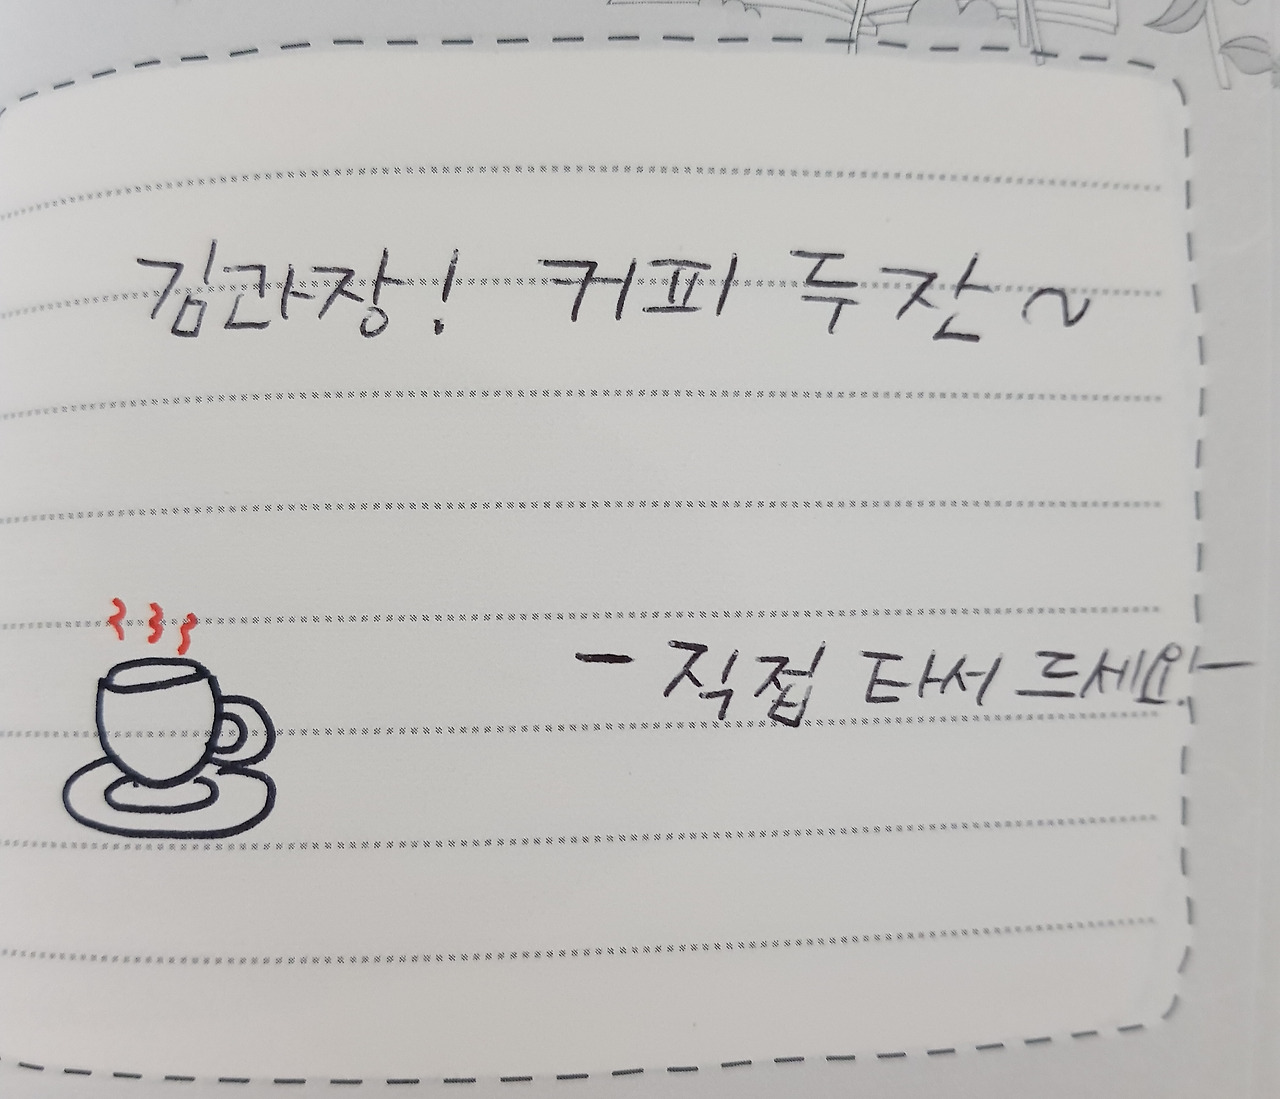 김과장! 커피 두 잔 ~
- 직접 타서 드세요! -